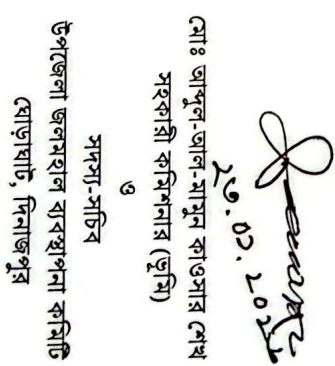 মোঃ আব্দুল-আল-মামুন কাওসার শেখ
সহকারী কমিশনার (ভূমি)
ও
সদস্য-সচিব
উপজেলা জলমহাল ব্যবস্থাপনা কমিটি
ঘোড়াঘাট, দিনাজপুর